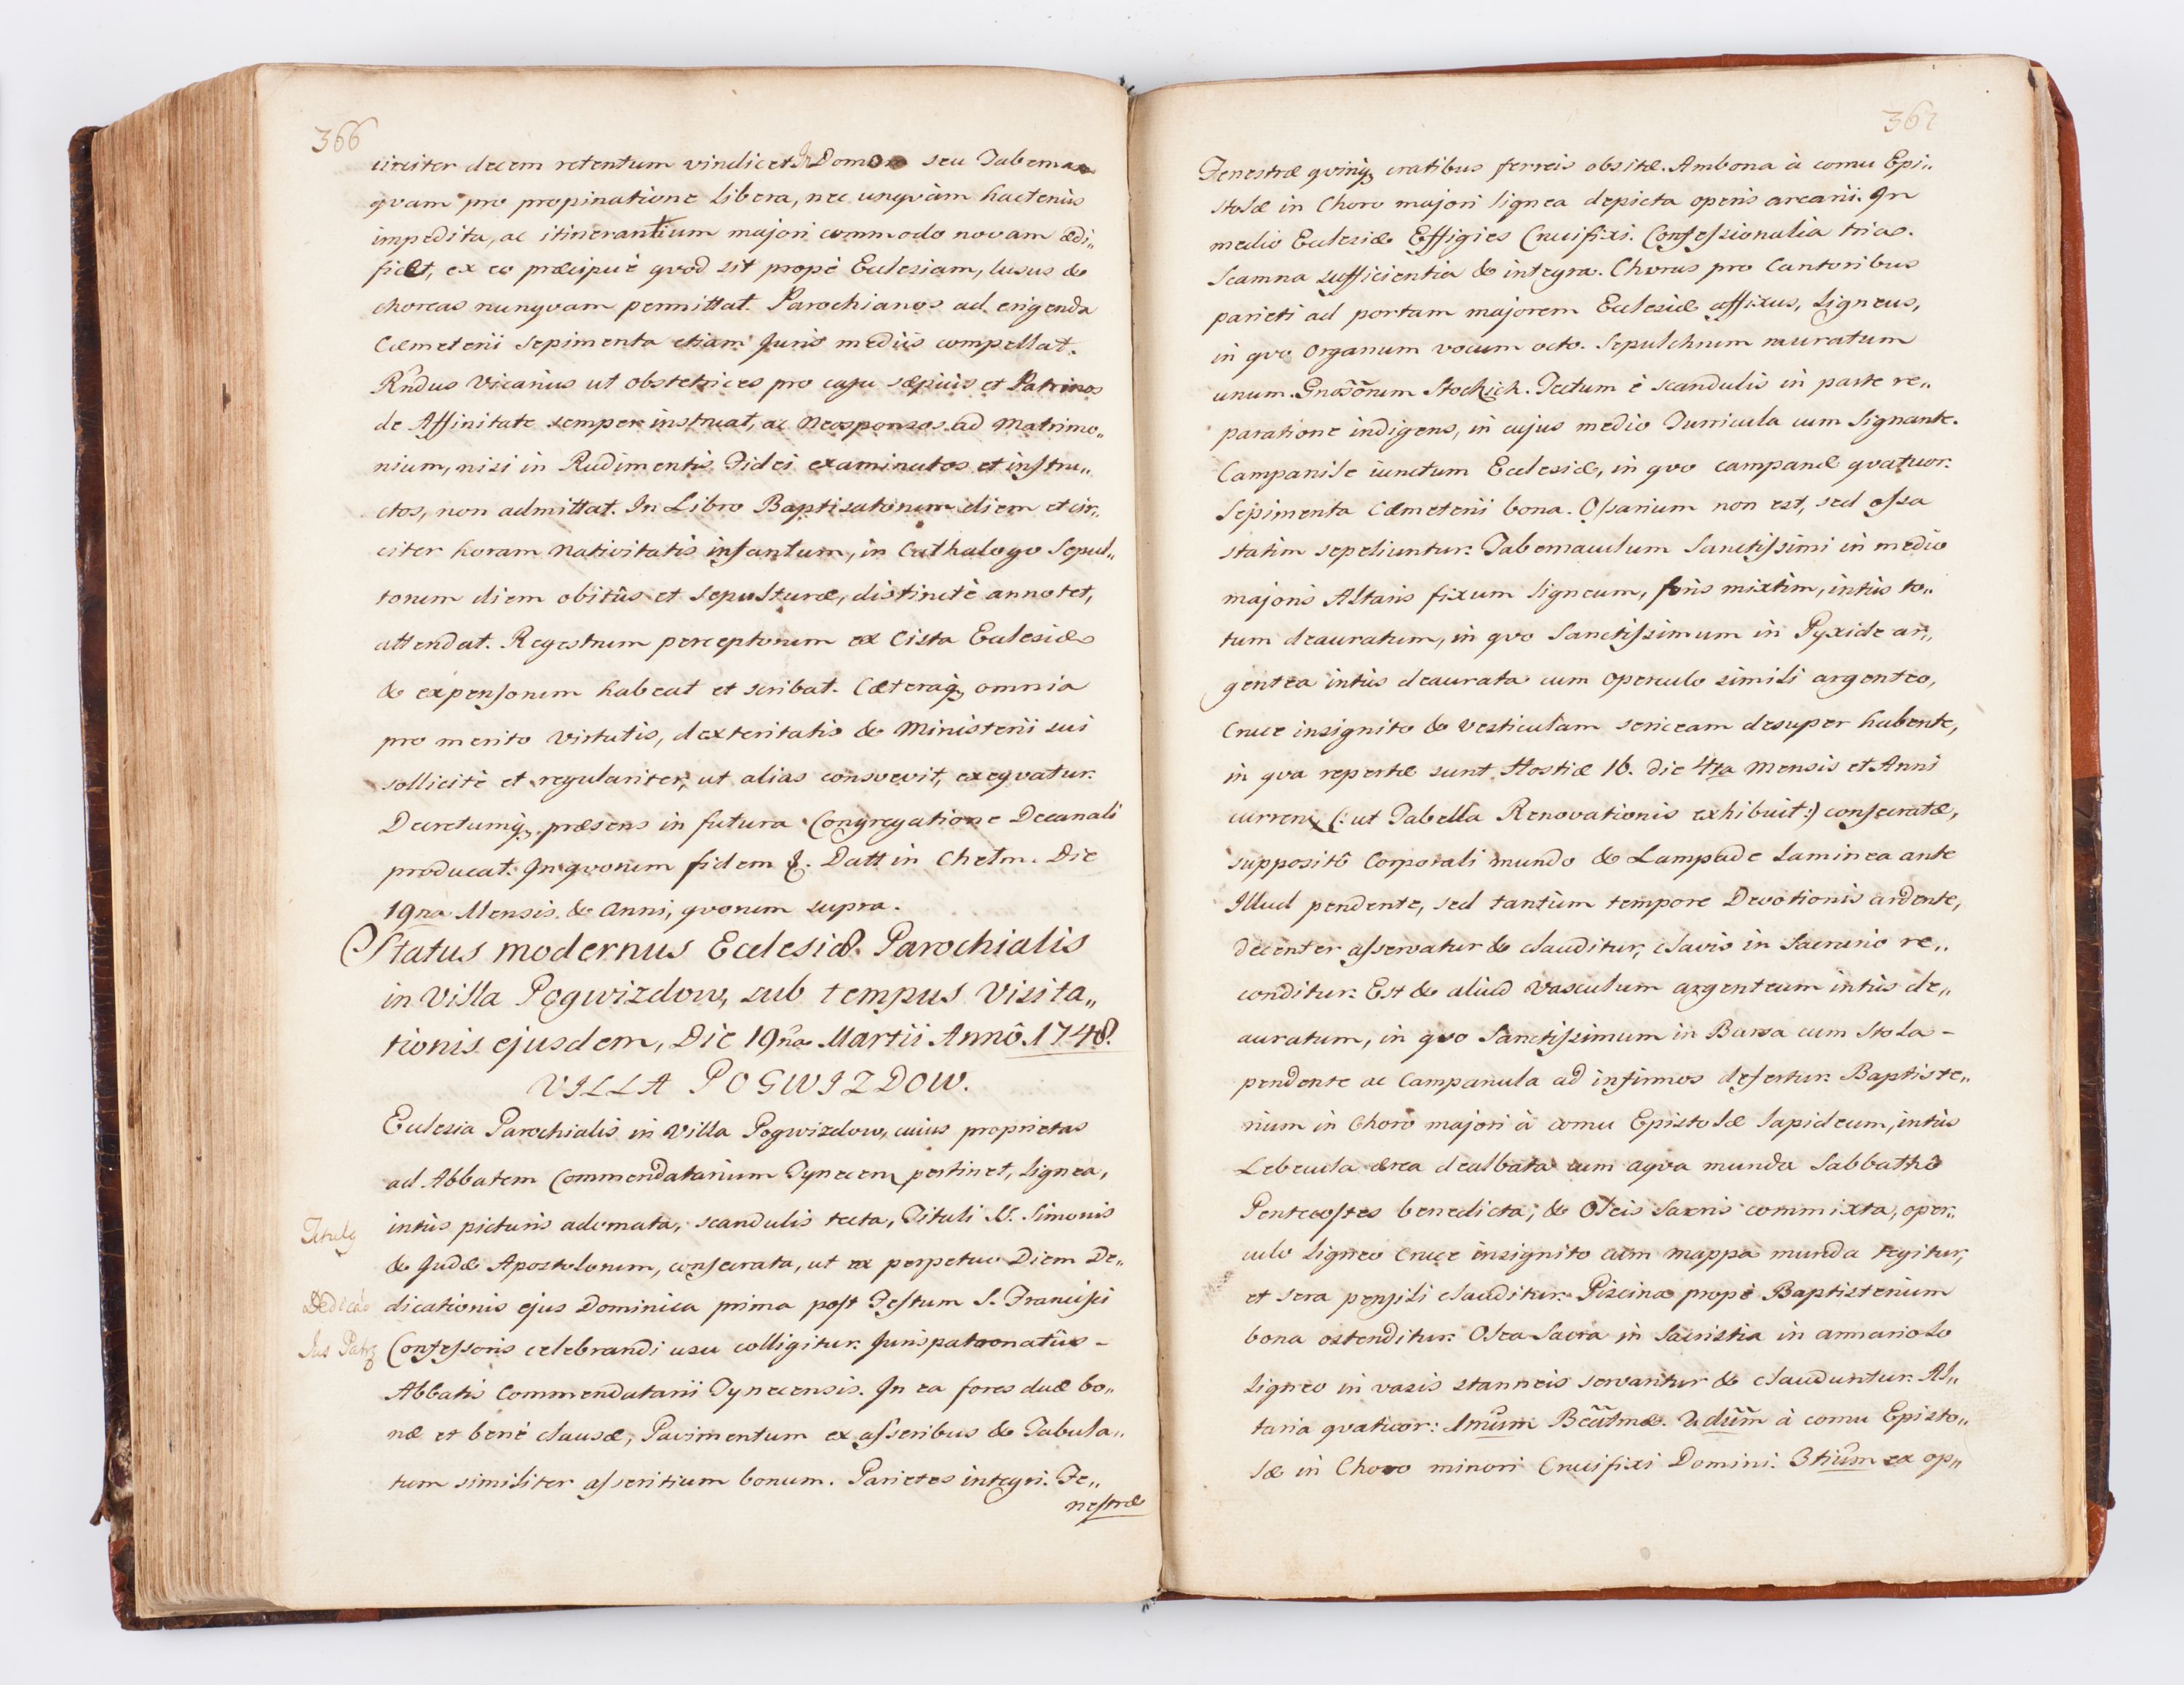 366
circiter decem retentum vindicet. In Domo seu Taberna
qvam pro propinatione libera, nec unqvàm hactenùs
impedita, ac itinerantium majori commodo novam ædi„
ficet, ex eo præcipuè qvod sit propè Ecclesiam, lusus &
choreas nunqvam permittat. Parochianos ad erigenda
Cæmeterii sepimenta etiam Juris mediis compellat.
Rndus Vicarius ut obstetrices pro casu sæpius et Patrinos
de Affinitate semper instruat, ac Neosponsos ad Matrimo„
nium, nisi in Rudimentis Fidei examinatos et instru„
ctos, non admittat. In Libro Baptisatorum diem et cir„
citer horam nativitatis infantum, in Cathalogo Sepul„
torum diem obitûs et sepulturæ, distinctè annotet,
attendat. Regestrum perceptorum ex Cista Ecclesiæ
& expensorum habeat et scribat. Cæteraq, omnia
pro merito virtutis, dexteritatis & Ministerii sui
sollicitè et regulariter, ut alias consvevit, exeqvatur.
Decretumq, præsens in futura Congregatione Decanali
producat. In qvorum fidem &. Datt in Chełm. Die
19na Mensis & Anni, qvorum supra.
Status modernus Ecclesiæ Parochialis
in Villa Pogwizdow, sub tempus Visita„
tionis ejusdem, Die 19na Martii Annô 1748.
VILLA POGWIZDOW.
Ecclesia Parochialis in Villa Pogwizdow, cuius proprietas
ad Abbatem Commendatarium Tynecen pertinet, lignea,
intùs picturis adornata, scandulis tecta, Tituli SS. Simonis
& Judæ Apostolorum, consecrata, ut ex perpetuo Diem De„
dicationis ejus Dominica prima post Festum S. Francisci
Confessoris celebrandi usu colligitur. Jurispatronatûs –
Abbatis Commendatarii Tynecensis. In ea fores duæ bo„
næ et benè clausæ, Pavimentum ex asseribus & Tabula„
tum similiter asseritium bonum. Parietes integri. Fe„
nestræ
Dedicao
Jus Patr
Fenestræ qvinq, cratibus ferreis obsitæ. Ambona à cornu Epi„
stolæ in Choro majori lignea depicta operis arcarii. In
medio Ecclesiæ Effigies Crucifixi. Confessionalia tria.
Scamna sufficientia & integra. Chorus pro Cantoribus
parieti ad portam majorem Ecclesiæ affixus, ligneus,
in qvo Organum vocum octo. Sepulchrum muratum
unum. Stockich. Tectum è scandulis in parte re„
paratione indigens, in cujus medio Turricula cum Signante.
Campanile iunctum Ecclesiæ, in qvo campanæ qvatuor.
Sepimenta Cæmeterii bona. Ossarium non est, sed ossa
statim sepeliuntur. Tabernaculum Sanctissimi in medio
majoris Altaris fixum ligneum, foris mixtim, intùs to„
tum deauratum, in qvo Sanctissimum in Pyxide ar„
gentea intùs deaurata cum operculo simili argenteo,
Cruce insignito & vesticulam sericeam desuper habente,
in qva repertæ sunt Hostiæ 16. die 4ta Mensis et Anni
curren (: ut Tabella Renovationis exhibuit :) consecratæ,
suppositô Corporali mundo & Lampade laminea ante
Illud pendente, sed tantùm tempore Devotionis ardente,
decenter asservatur & clauditur, clavis in Sacrario re„
conditur. Est & aliud Vasculum argenteum intùs de„
auratum, in qvo Sanctissimum in Bursa cum Stola –
pendente ac Campanula ad infirmos defertur. Baptiste„
rium in Choro majori à cornu Epistolæ lapideum, intùs
Lebecula ærea dealbata cum aqva munda Sabbathô
Pentecostes benedicta, & Oleis Sacris commixta, oper„
culo ligneo cruce insignito cum mappa munda tegitur,
et sera pensili clauditur. Piscina propè Baptisterium
bona ostenditur. Olea Sacra in Sacristia in armariolo
ligneo in vasis stanneis servantur & clauduntur. Al„
taria qvatuor: 1mum Bcatmæ. 2dum à cornu Episto„
læ in Choro minori Crucifixi Domini. 3tium ex op„